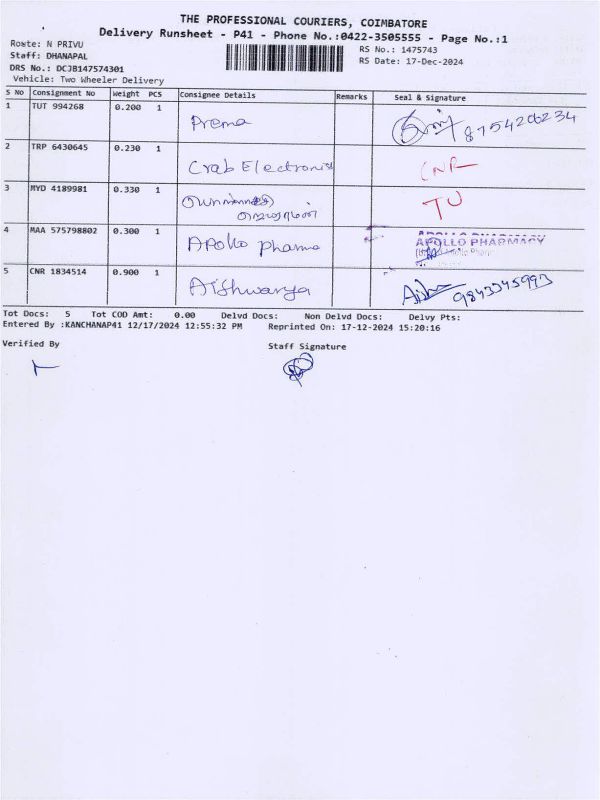 THE PROFESSIONAL COURIERS, COIMBATORE
Delivery Runsheet - P41 - Phone No.:0422-3505555 - Page No.:1
Route: N PRIVU
RS No.: 1475743
Staff: DHANAPAL
RS Date: 17-Dec-2024
DRS No.: DCJB147574301
Vehicle: Two Wheeler Delivery
S No Consignment No Weight PCS Consignee Details Remarks Seal & Signature
1 TUT 994268 0.200 1 Prema 8754206234
2 TRP 6430645 0.230 1 Crab Electronics CNR
3 MYD 4189981 0.330 1 TU
4 MAA 575798802 0.300 1 Apollo pharma APOLLO PHARMACY
5 CNR 1834514 0.900 1 Aishwarya 9843345993
Tot Docs: 5 Tot COD Amt: 0.00 Delvd Docs: Non Delvd Docs: Delvy Pts:
Entered By :KANCHANAP41 12/17/2024 12:55:32 PM Reprinted On: 17-12-2024 15:20:16
Verified By Staff Signature